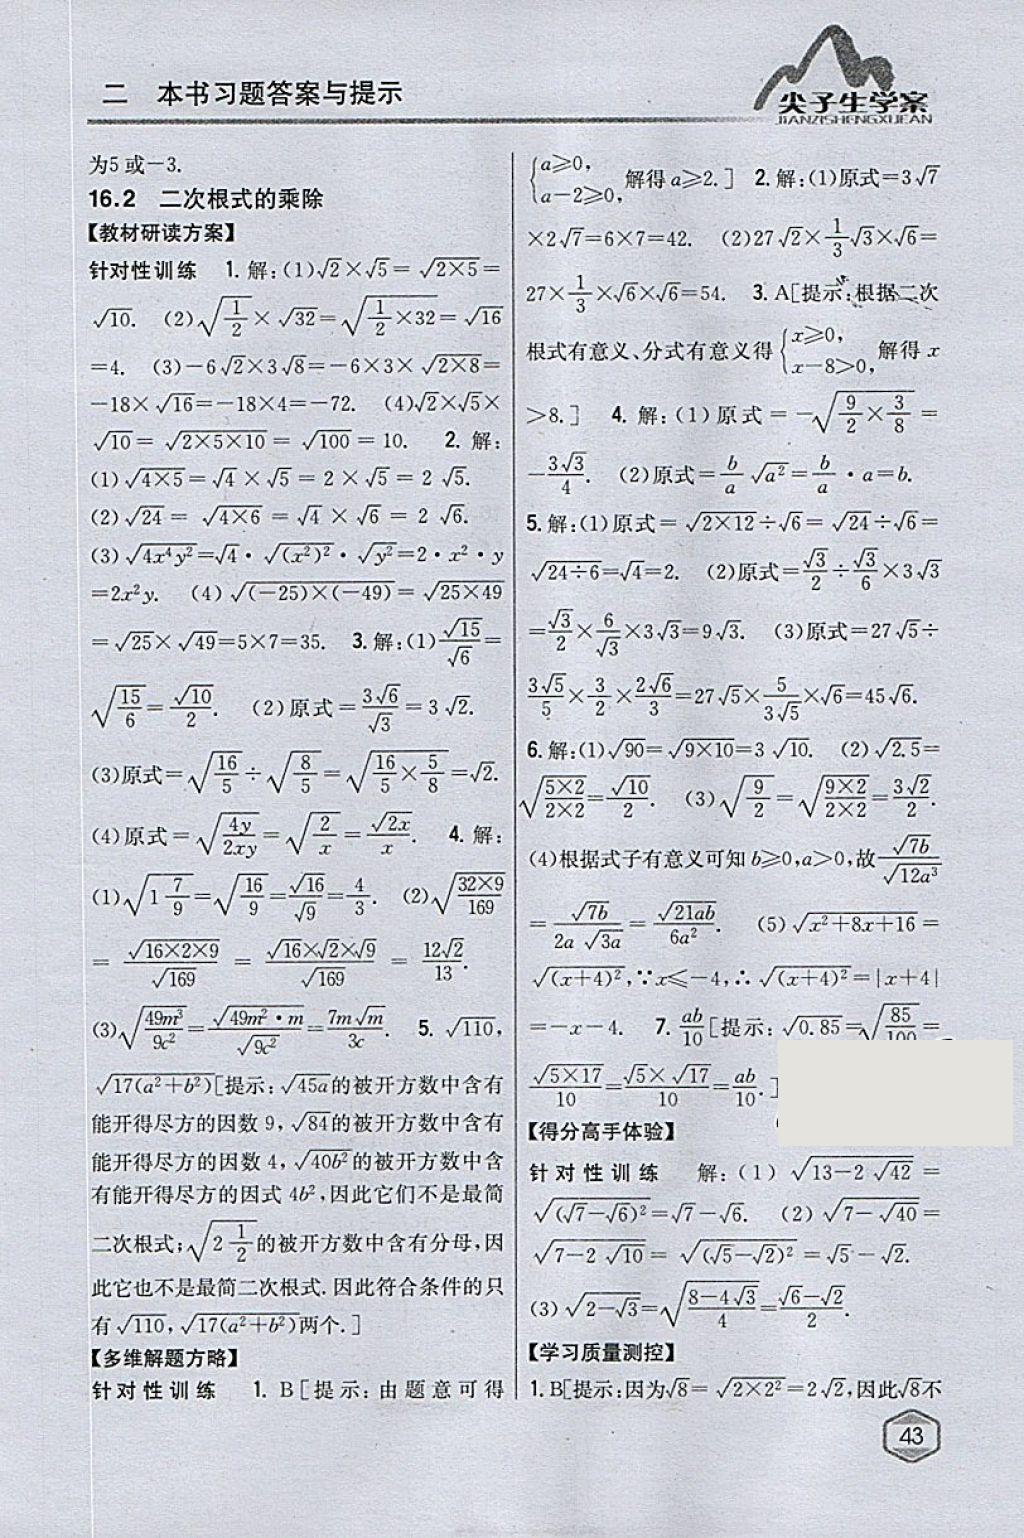 二 本书习题答案与提示
尖子生学案
JIANZISHENGXUEAN
为5或-3.
16.2 二次根式的乘除
【教材研读方案】
针对性训练 1.解:(1)√2×√5=√(2×5)=
√10. (2)√(1/2)×√32=√(1/2×32)=√16
=4. (3)-6√2×3√8=-6×3×√(2×8)=
-18×√16=-18×4=-72. (4)√2×√5×
√10=√(2×5×10)=√100=10. 2.解:
(1)√(4×5)=√4×√5=2×√5=2√5.
(2)√24=√(4×6)=√4×√6=2√6.
(3)√(4x⁴y²)=√4·√((x²)²)·√(y²)=2·x²·y
=2x²y. (4)√((-25)×(-49))=√(25×49)
=√25×√49=5×7=35. 3.解:(1)√15/√6=
√(15/6)=√10/2. (2)原式=3√6/√3=3√2.
(3)原式=√(16/5)÷√(8/5)=√(16/5×5/8)=√2.
(4)原式=√(4y/2xy)=√(2/x)=√(2x)/x. 4.解:
(1)√(1 7/9)=√(16/9)=√16/√9=4/3. (2)√((32×9)/169)
=√(16×2×9)/√169=(√16×√2×√9)/√169=12√2/13.
(3)√(49m³/9c²)=√(49m²·m)/√(9c²)=7m√m/3c. 5.√110,
√(17(a²+b²))[提示:√(45a)的被开方数中含有
能开得尽方的因数9,√84的被开方数中含有
能开得尽方的因数4,√(40b²)的被开方数中含
有能开得尽方的因式4b²,因此它们不是最简
二次根式;√(2 1/2)的被开方数中含有分母,因
此它也不是最简二次根式.因此符合条件的只
有√110,√(17(a²+b²))两个.]
【多维解题方略】
针对性训练 1.B[提示:由题意可得
{a≥0, a-2≥0, 解得a≥2.] 2.解:(1)原式=3√7
×2√7=6×7=42. (2)27√2×1/3√3×√6=
27×1/3×√6×√6=54. 3.A[提示:根据二次
根式有意义、分式有意义得{x≥0, x-8>0, 解得x
>8.] 4.解:(1)原式=-√(9/2×3/8)=
-3√3/4. (2)原式=b/a√(a²)=b/a·a=b.
5.解:(1)原式=√(2×12)÷√6=√24÷√6=
√(24÷6)=√4=2. (2)原式=√3/2÷√3/6×3√3
=√3/2×6/√3×3√3=9√3. (3)原式=27√5÷
3√5/5×3/2×2√6/3=27√5×5/(3√5)×√6=45√6.
6.解:(1)√90=√(9×10)=3√10. (2)√2.5=
√((5×2)/(2×2))=√10/2. (3)√(9/2)=√((9×2)/(2×2))=3√2/2.
(4)根据式子有意义可知b≥0,a>0,故√(7b)/√(12a³)
=√(7b)/(2a√(3a))=√(21ab)/6a². (5)√(x²+8x+16)=
√((x+4)²),∵x≤-4,∴√((x+4)²)=|x+4|
=-x-4. 7.ab/10[提示:√0.85=√(85/100)=
√(5×17)/10=(√5×√17)/10=ab/10.]
【得分高手体验】
针对性训练 解:(1)√(13-2√42)=
√((√7-√6)²)=√7-√6. (2)√(7-√40)=
√(7-2√10)=√((√5-√2)²)=√5-√2.
(3)√(2-√3)=√((8-4√3)/4)=(√6-√2)/2.
【学习质量测控】
1.B[提示:因为√8=√(2×2²)=2√2,因此√8不
43